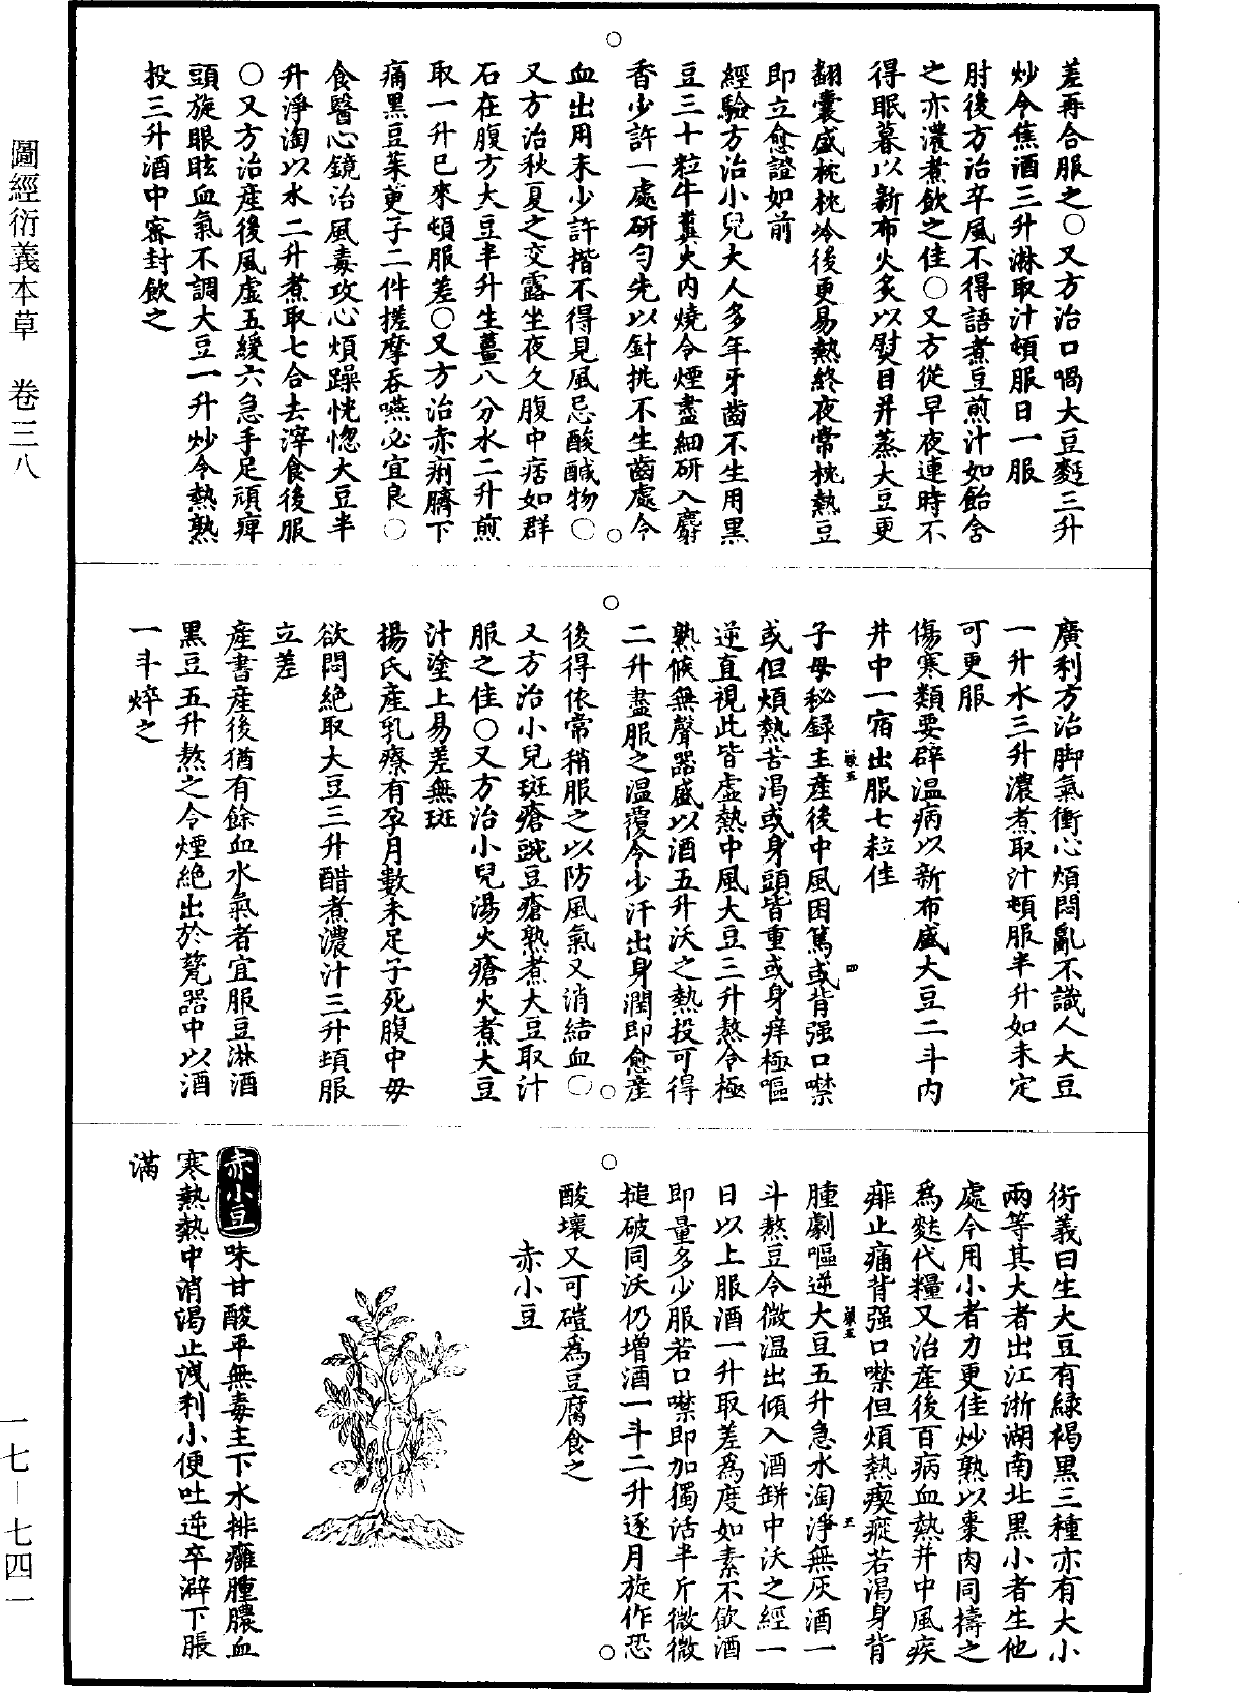 差再合服之○又方治口喎大豆麪三升
炒令焦酒三升淋取汁頓服日一服
肘後方治卒風不得語煮豆煎汁如飴含
之亦濃煮飲之佳○又方從早夜連時不
得眠暮以新布火炙以熨目并蒸大豆更
翻囊盛枕枕冷後更易熱終夜常枕熱豆
即立愈證如前
經驗方治小兒大人多年牙齒不生用黑
豆三十粒牛糞火內燒令煙盡細研入麝
香少許一處研勻先以針挑不生齒處令
血出用末少許揩不得見風忌酸醎物○
又方治秋夏之交露坐夜久腹中痞如群
石在腹方大豆半升生薑八分水二升煎
取一升已來頓服差○又方治赤痢臍下
痛黑豆茱萸子二件搓摩吞嚥必宜良○
食醫心鏡治風毒攻心煩躁恍惚大豆半
升淨淘以水二升煮取七合去滓食後服
○又方治産後風虛五緩六急手足頑痺
頭旋眼眩血氣不調大豆一升炒令熱熟
投三升酒中密封飲之
廣利方治脚氣衝心煩悶亂不識人大豆
一升水三升濃煮取汁頓服半升如未定
可更服
傷寒類要辟温病以新布盛大豆二斗內
井中一宿出服七粒佳
子母秘録主産後中風困篤或背强口噤
或但煩熱苦渴或身頭皆重或身痒極嘔
逆直視此皆虛熱中風大豆三升熬令極
熟候無聲器盛以酒五升沃之熱投可得
二升盡服之温覆令少汗出身潤即愈産
後得依常稍服之以防風氣又消結血○
又方治小兒斑瘡豌豆瘡熟煮大豆取汁
服之佳○又方治小兒湯火瘡火煮大豆
汁塗上易差無斑
楊氏産乳療有孕月數未足子死腹中母
欲悶絶取大豆三升醋煮濃汁三升頓服
立差
産書産後猶有餘血水氣者宜服豆淋酒
黑豆五升熬之令煙絶出於甆器中以酒
一斗焠之
衍義曰生大豆有緑褐黑三種亦有大小
兩等其大者出江浙湖南北黑小者生他
處今用小者力更佳炒熟以棗肉同擣之
為麨代糧又治産後百病血熱并中風疾
痱止痛背强口噤但煩熱瘈瘲若渴身背
腫劇嘔逆大豆五升急水淘淨無灰酒一
斗熬豆令微温出傾入酒缾中沃之經一
日以上服酒一升取差為度如素不飲酒
即量多少服若口噤即加獨活半斤微微
搥破同沃仍增酒一斗二升逐月旋作恐
酸壞又可磑為豆腐食之
赤小豆
赤小豆味甘酸平無毒主下水排癰腫膿血
寒熱熱中消渴止洩利小便吐逆卒澼下脹
滿
圖經衍義本草 卷三八
一七—七四一